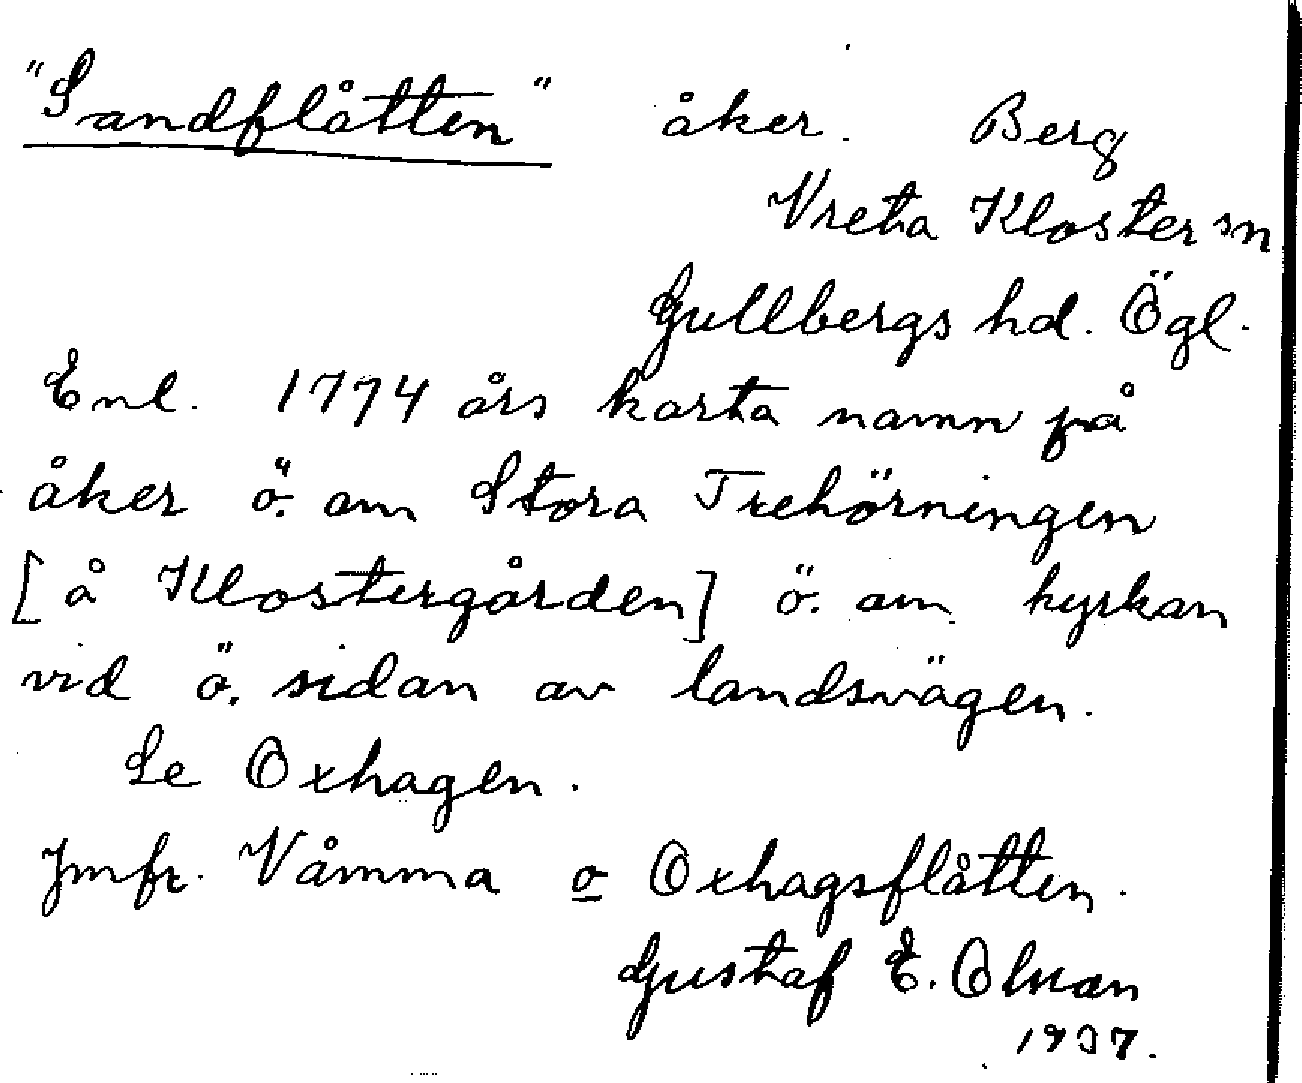 "Sandflåtten" åker. Berg
Vreta Kloster sn
Gullbergs hd. Ögl.
Enl. 1774 års karta namn på
åker ö. om Stora Trehörningen
[å Klostergården] ö. om kyrkan
vid ö. sidan av landsvägen.
Se Oxhagen.
Jmfr. Våmma o Oxhagsflåtten.
Gustaf E. Olsson
1937.